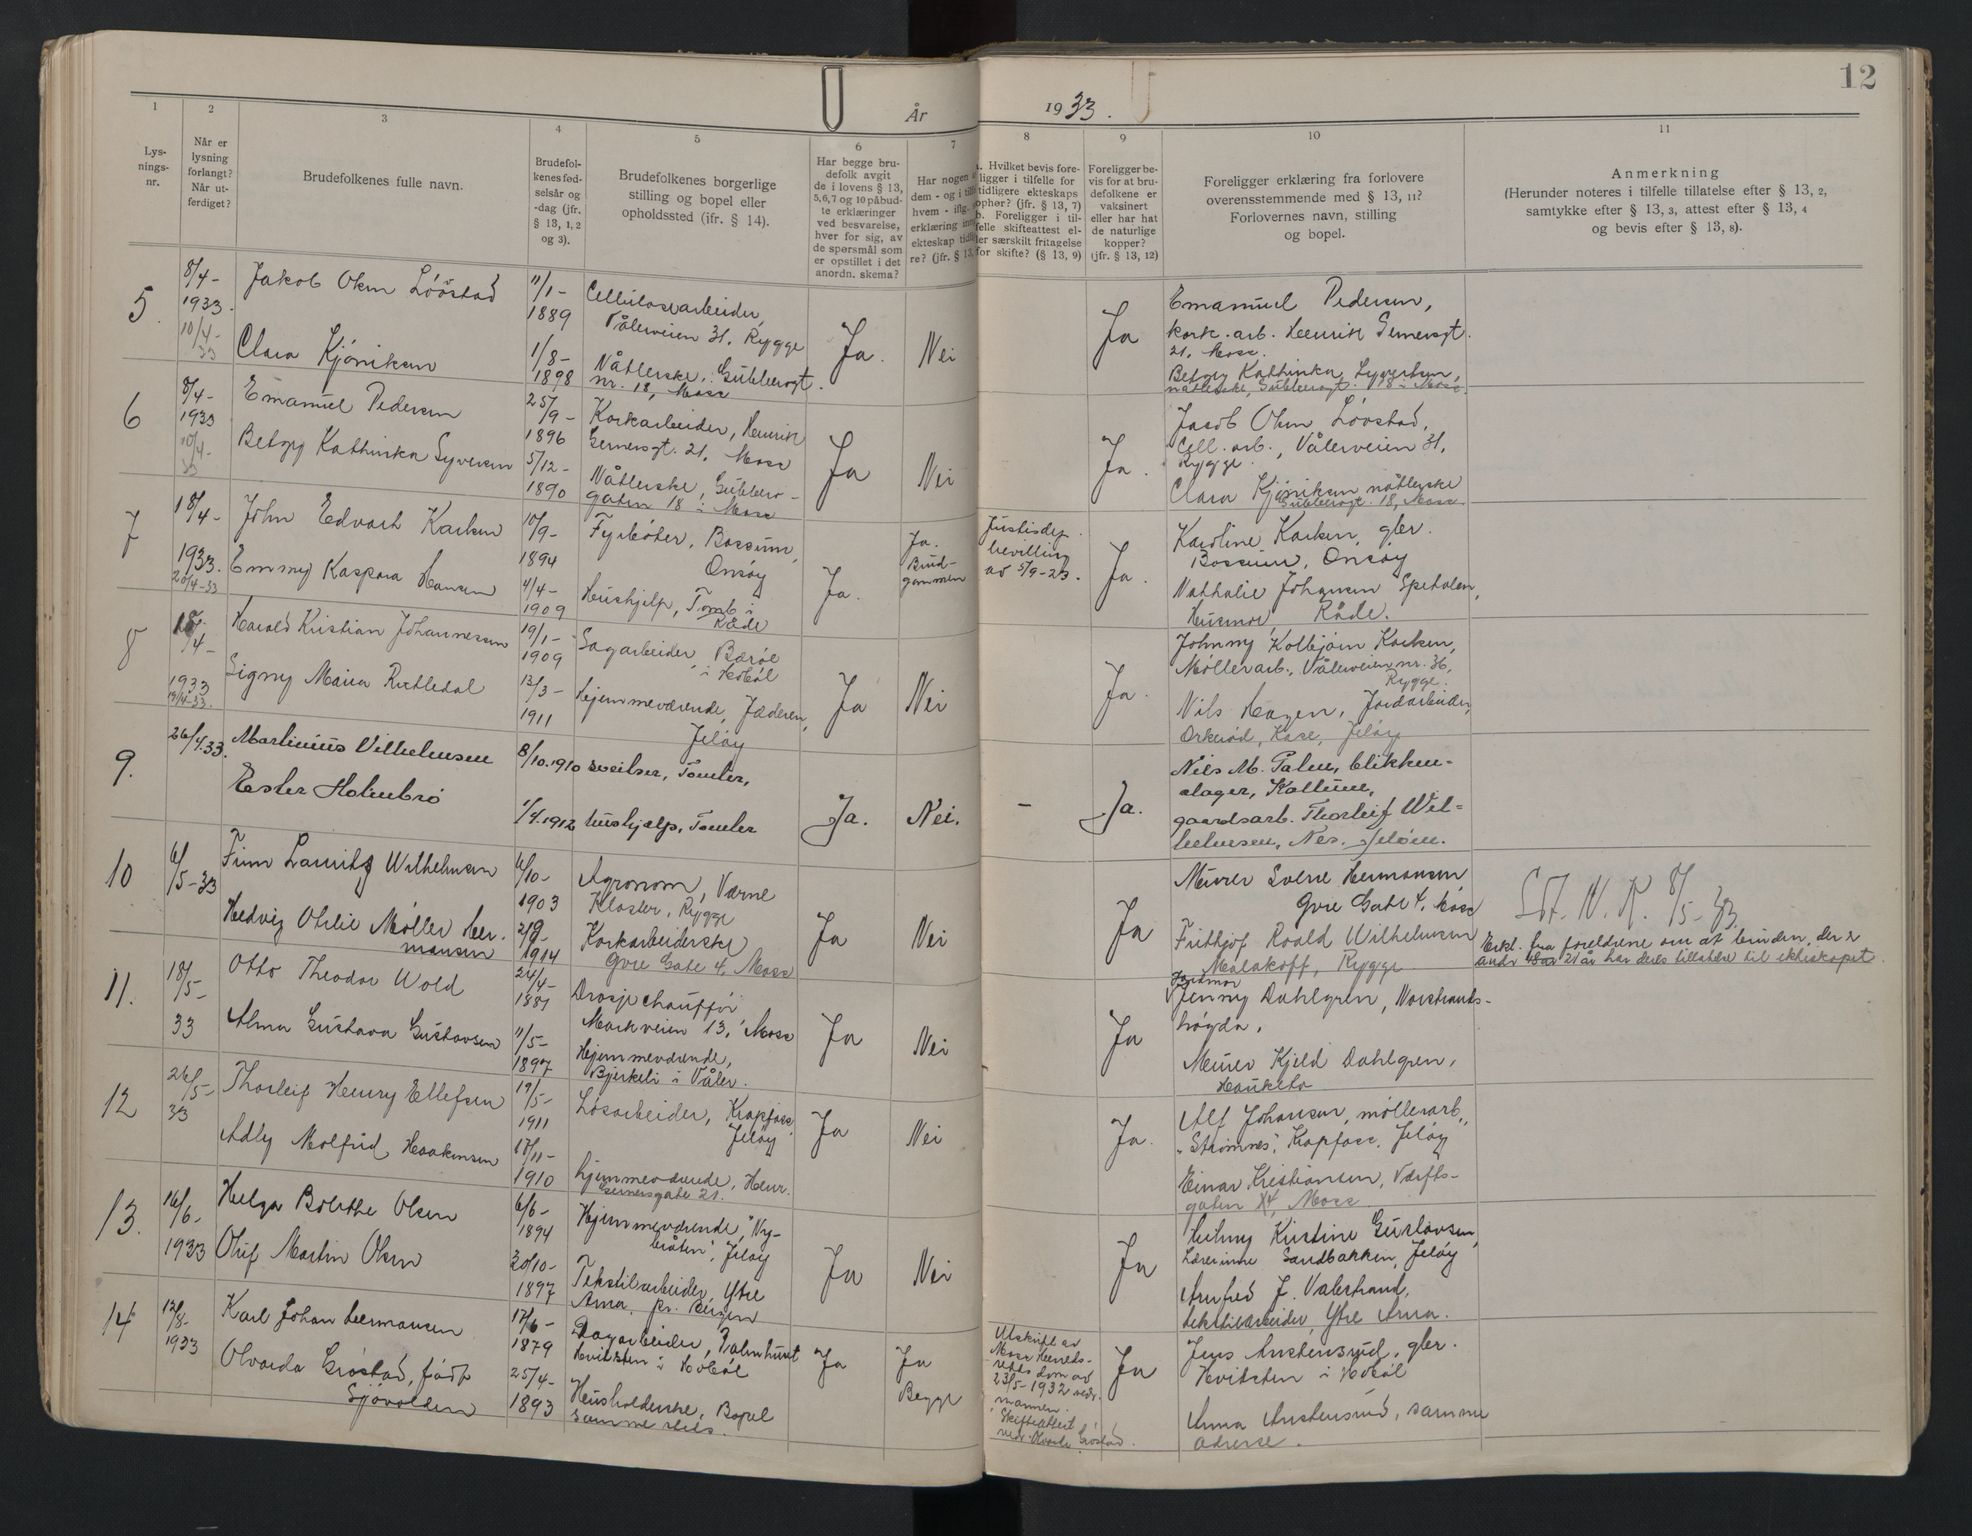 12
År 1933.
1
2
3
4
5
6
7
8
9
10
11
Lys-
nings-
nr.
Når er
lysning
forlangt?
Når ut-
ferdiget?
Brudefolkenes fulle navn.
Brudefol-
kenes fød-
selsår og
-dag (jfr.
§ 13, 1, 2
og 3).
Brudefolkenes borgerlige
stilling og bopel eller
opholdssted (jfr. § 14).
Har begge bru-
defolk avgit
de i lovens § 13,
5, 6, 7 og 10 påbud-
te erklæringer
ved besvarelse,
hver for sig, av
de spørsmål som
er opstillet i det
anordn. skema?
Har nogen a
dem - og i tilfe
hvem - iflg.
erklæring inn
ekteskap tidli
re? (jfr. § 13,
a. Hvilket bevis fore-
ligger i tilfelle for
tidligere ekteskaps
ophør? (jfr. § 13, 7)
b. Foreligger i til-
felle skifteattest el-
ler særskilt fritagelse
for skifte? (§ 13, 9)
Foreligger be-
vis for at bru-
defolkene er
vaksinert
eller har hat
de naturlige
kopper?
(jfr. § 13, 12)
Foreligger erklæring fra forlovere
overensstemmende med § 13, 11?
Forlovernes navn, stilling
og bopel.
Anmerkning
(Herunder noteres i tilfelle tillatelse efter § 13, 2,
samtykke efter § 13, 3, attest efter § 13, 4
og bevis efter § 13, 8).
5
8/4-
1933.
10/4-
33
Jakob Olsen Lövstad
Clara Kjöniksen
11/1-
1889
1/8-
1898
Cellulosearbeider,
Vålerveien 31, Rygge
Nåtlerske, Gubberogt.
nr. 18, Moss
Ja.
Nei
Ja
Emanuel Pedersen,
kork.arb. Henrik Gernersgt.
21, Moss.
Betzy Kathinka Syvertsen,
nåtlerske, Gubberogt. 18 i Moss.
6
8/4-
1933
10/4-
33
Emanuel Pedersen
Betzy Kathinka Syversen
25/9-
1896
5/12-
1890
Korkarbeider, Henrik
Gernersgt. 21, Moss
Nåtlerske, Gubbero-
gaten 18 i Moss
Ja
Nei
Ja.
Jacob Olsen Lövstad,
Cell.arb., Vålerveien 31,
Rygge.
Clara Kjöniksen nåtlerske
Gubberogt. 18, Moss
7
18/4-
1933.
20/4-33
John Edvart Karlsen
Emmy Kaspara Hansen
10/9-
1894
4/4-
1909
Fyrbøter, Bossum,
Onsøy
Hushjelp, Tomb i
Råde
Ja.
Ja.
Brud-
gommen
Justisdep.
bevilling
av 5/9-23.
Ja.
Karoline Karlsen, gbr.
Bossum, Onsøy
Nathalie Johansen Spetalen,
Husmor Råde.
8
18/4-
1933
19/4-33.
Harald Kristian Johannessen
Signy Maria
19/1-
1909
13/3-
1911
Sagarbeider, Bærøe
i Hobøl
Hjemmeværende, Jæderen,
Jeløy
Ja
Nei
Ja.
Johnny Kolbjørn Karlsen,
Møllerarb., Vålerveien nr. 36,
Rygge.
Nils Hagen, Jordarbeider,
Orkerød, Kase, Jeløy
9.
26/4.33.
Martinius Vilhelmsen
Ester Holmbro
8/10.1910
1/4.1912
sveitser, Tomler,
hushjelp, Tomler
Ja.
Nei.
-
Ja.
Nils M. Palm, blikken-
slager, Kallum,
gaardsarb. Thorleif Wil-
helmsen, Nes, Jeløen.
10
6/5-33
Finn Lauritz Wilhelmsen
Hedvig Otilie Møller Her-
mansen
6/10-
1903
21/9-
1914
Agronom, Værne
Kloster, Rygge
Korkarbeiderske
Øvre Gate 4, Moss
Ja
Nei
Ja
Murer Sverre Hermansen
Øvre Gate 4, Moss
Frithjof Roald Wilhelmsen
Malakoff, Rygge
Sdt. N. R. 8/5-33.
Erkl. fra foreldrene om at bruden, der er
under 21 år har deres tillatelse til ekteskapet.
11.
18/5-
33
Otto Theodor Wold
Alma Gustava Gustavsen
24/4-
1881
11/5-
1897
Drosjechauffør
Markveien 13, Moss
Hjemmeværende,
Bjerkeli i Våler.
Ja
Nei
Ja
Jordmor
Jenny Dahlgren, Norstrands-
høgda,
Murer Kjeld Dahlgren,
Hauketo
12
26/5-
33
Thorleif Henry Ellefsen
Adly Molfrid Haakensen
19/5-
1911
17/11-
1910
Løsarbeider, Krapfoss,
Jeløy
hjemmeværende, Henr.
Gernersgate 21.
Ja
Nei
Ja.
Alf Johansen, møllerarb.,
„Strømnes”, Krapfoss, Jeløy
Einar Kristiansen, Værfts-
gaten 14, Moss
13.
16/6-
1933
Helga Bolethe Olsen
Oluf Martin Olsen
6/6-
1894
30/10-
1897
Hjemmeværende, "Ny-
bråten", Jeløy
Tekstilarbeider, Ytre
Arna, pr. Bergen
Ja
Nei
Ja
Kristine Gustavsen,
Lærerinne Sandbakken, Jeløy
Arnfred J. Valestrand,
tekstilarbeider, Ytre Arna.
14
12/8-
1933
Karl Johan Hermansen
Olvarda Grøstad, født
Sjøvolden
17/6-
1879
25/4-
1893
Dagarbeider, Palmhuset
Hvitsten i Hobøl
Husholderske, Bopel
samme steds.
Ja
Ja
Begge
Utskrift av
Moss Herreds-
retts dom av
23/5-1932 vedr.
mannen.
Skifteattest
vedr. Olvarda Grøstad.
Ja
Jens Anstensrud, gbr.
Hvitsten i Hobøl
Anna Anstensrud, samme
adresse.